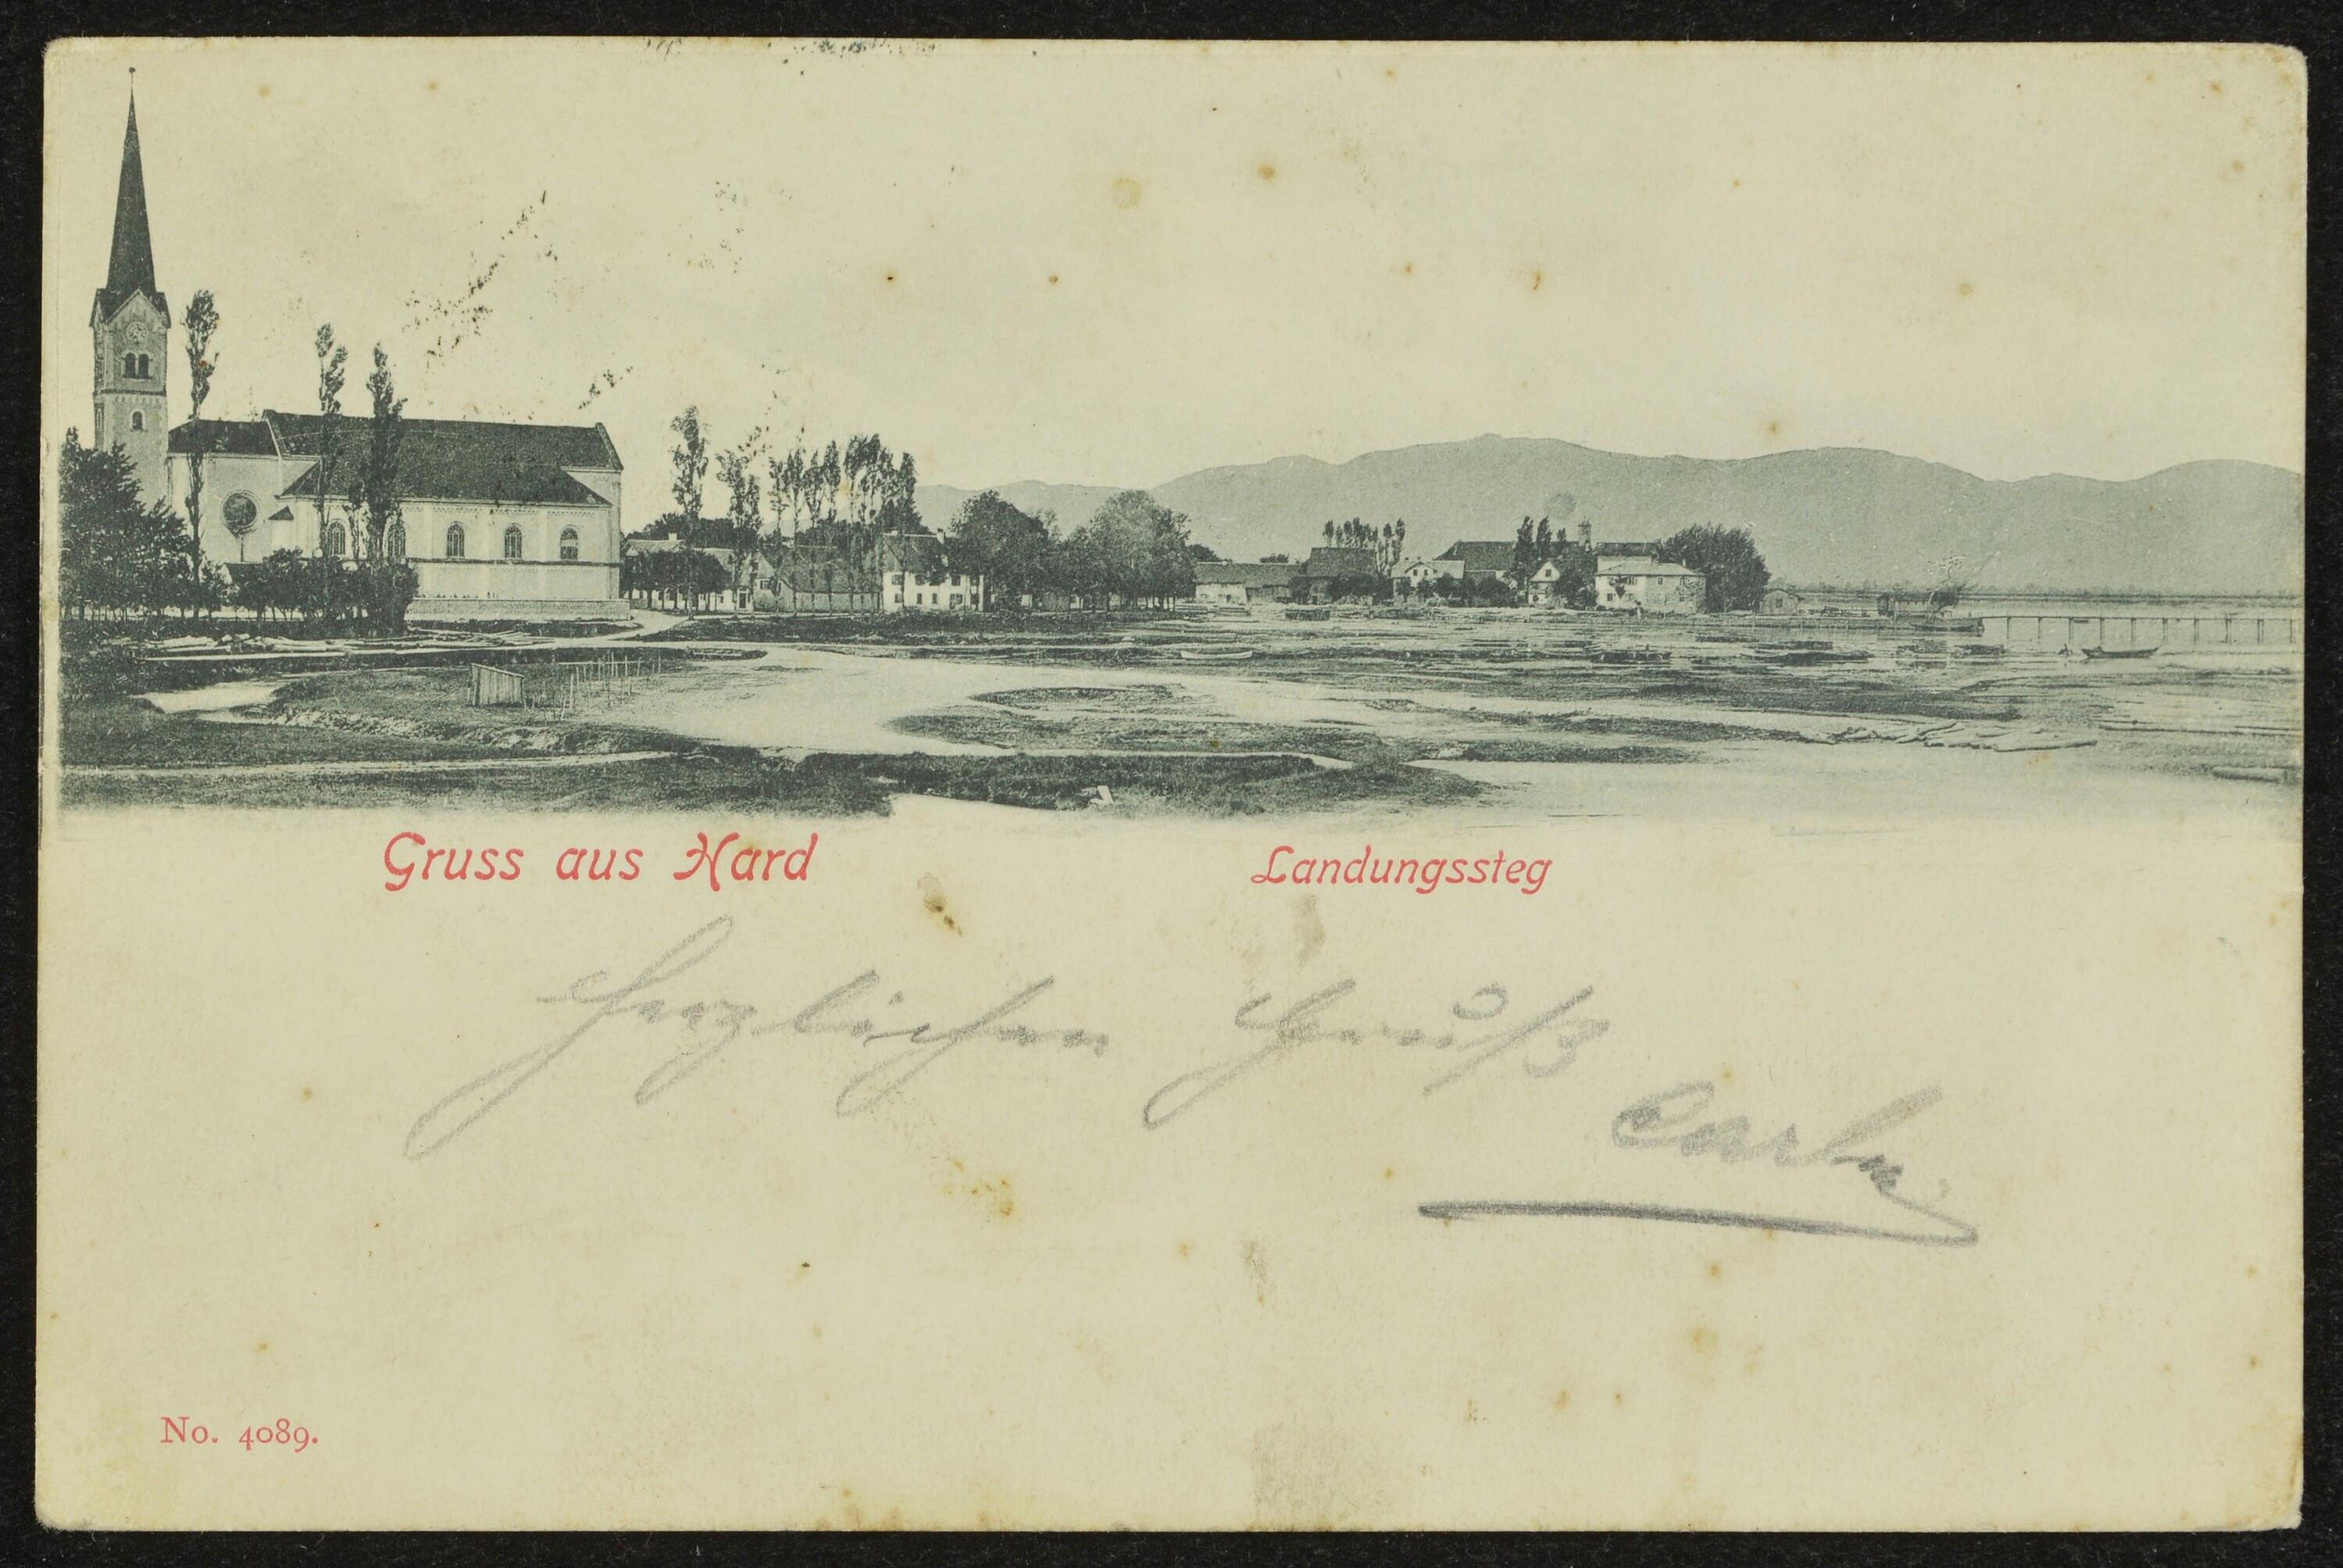 Gruss aus Hard
Landungssteg
Herzlichen Gruß
No. 4089.